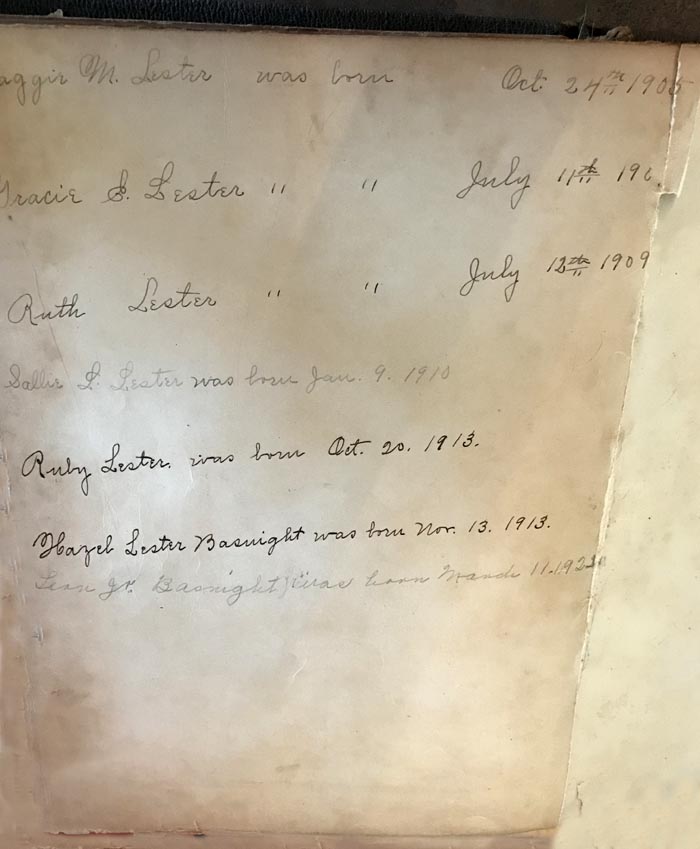 aggie M. Lester was born Oct. 24th 1905
Gracie S. Lester " " July 11th 190
Ruth Lester " " July 12th 1909
Sallie L. Lester was born Jan. 9. 1910
Ruby Lester. was born Oct. 20. 1913.
Hazel Lester Basnight was born Nov. 13. 1913.
Leon Jr. Basnight was born March 11.192